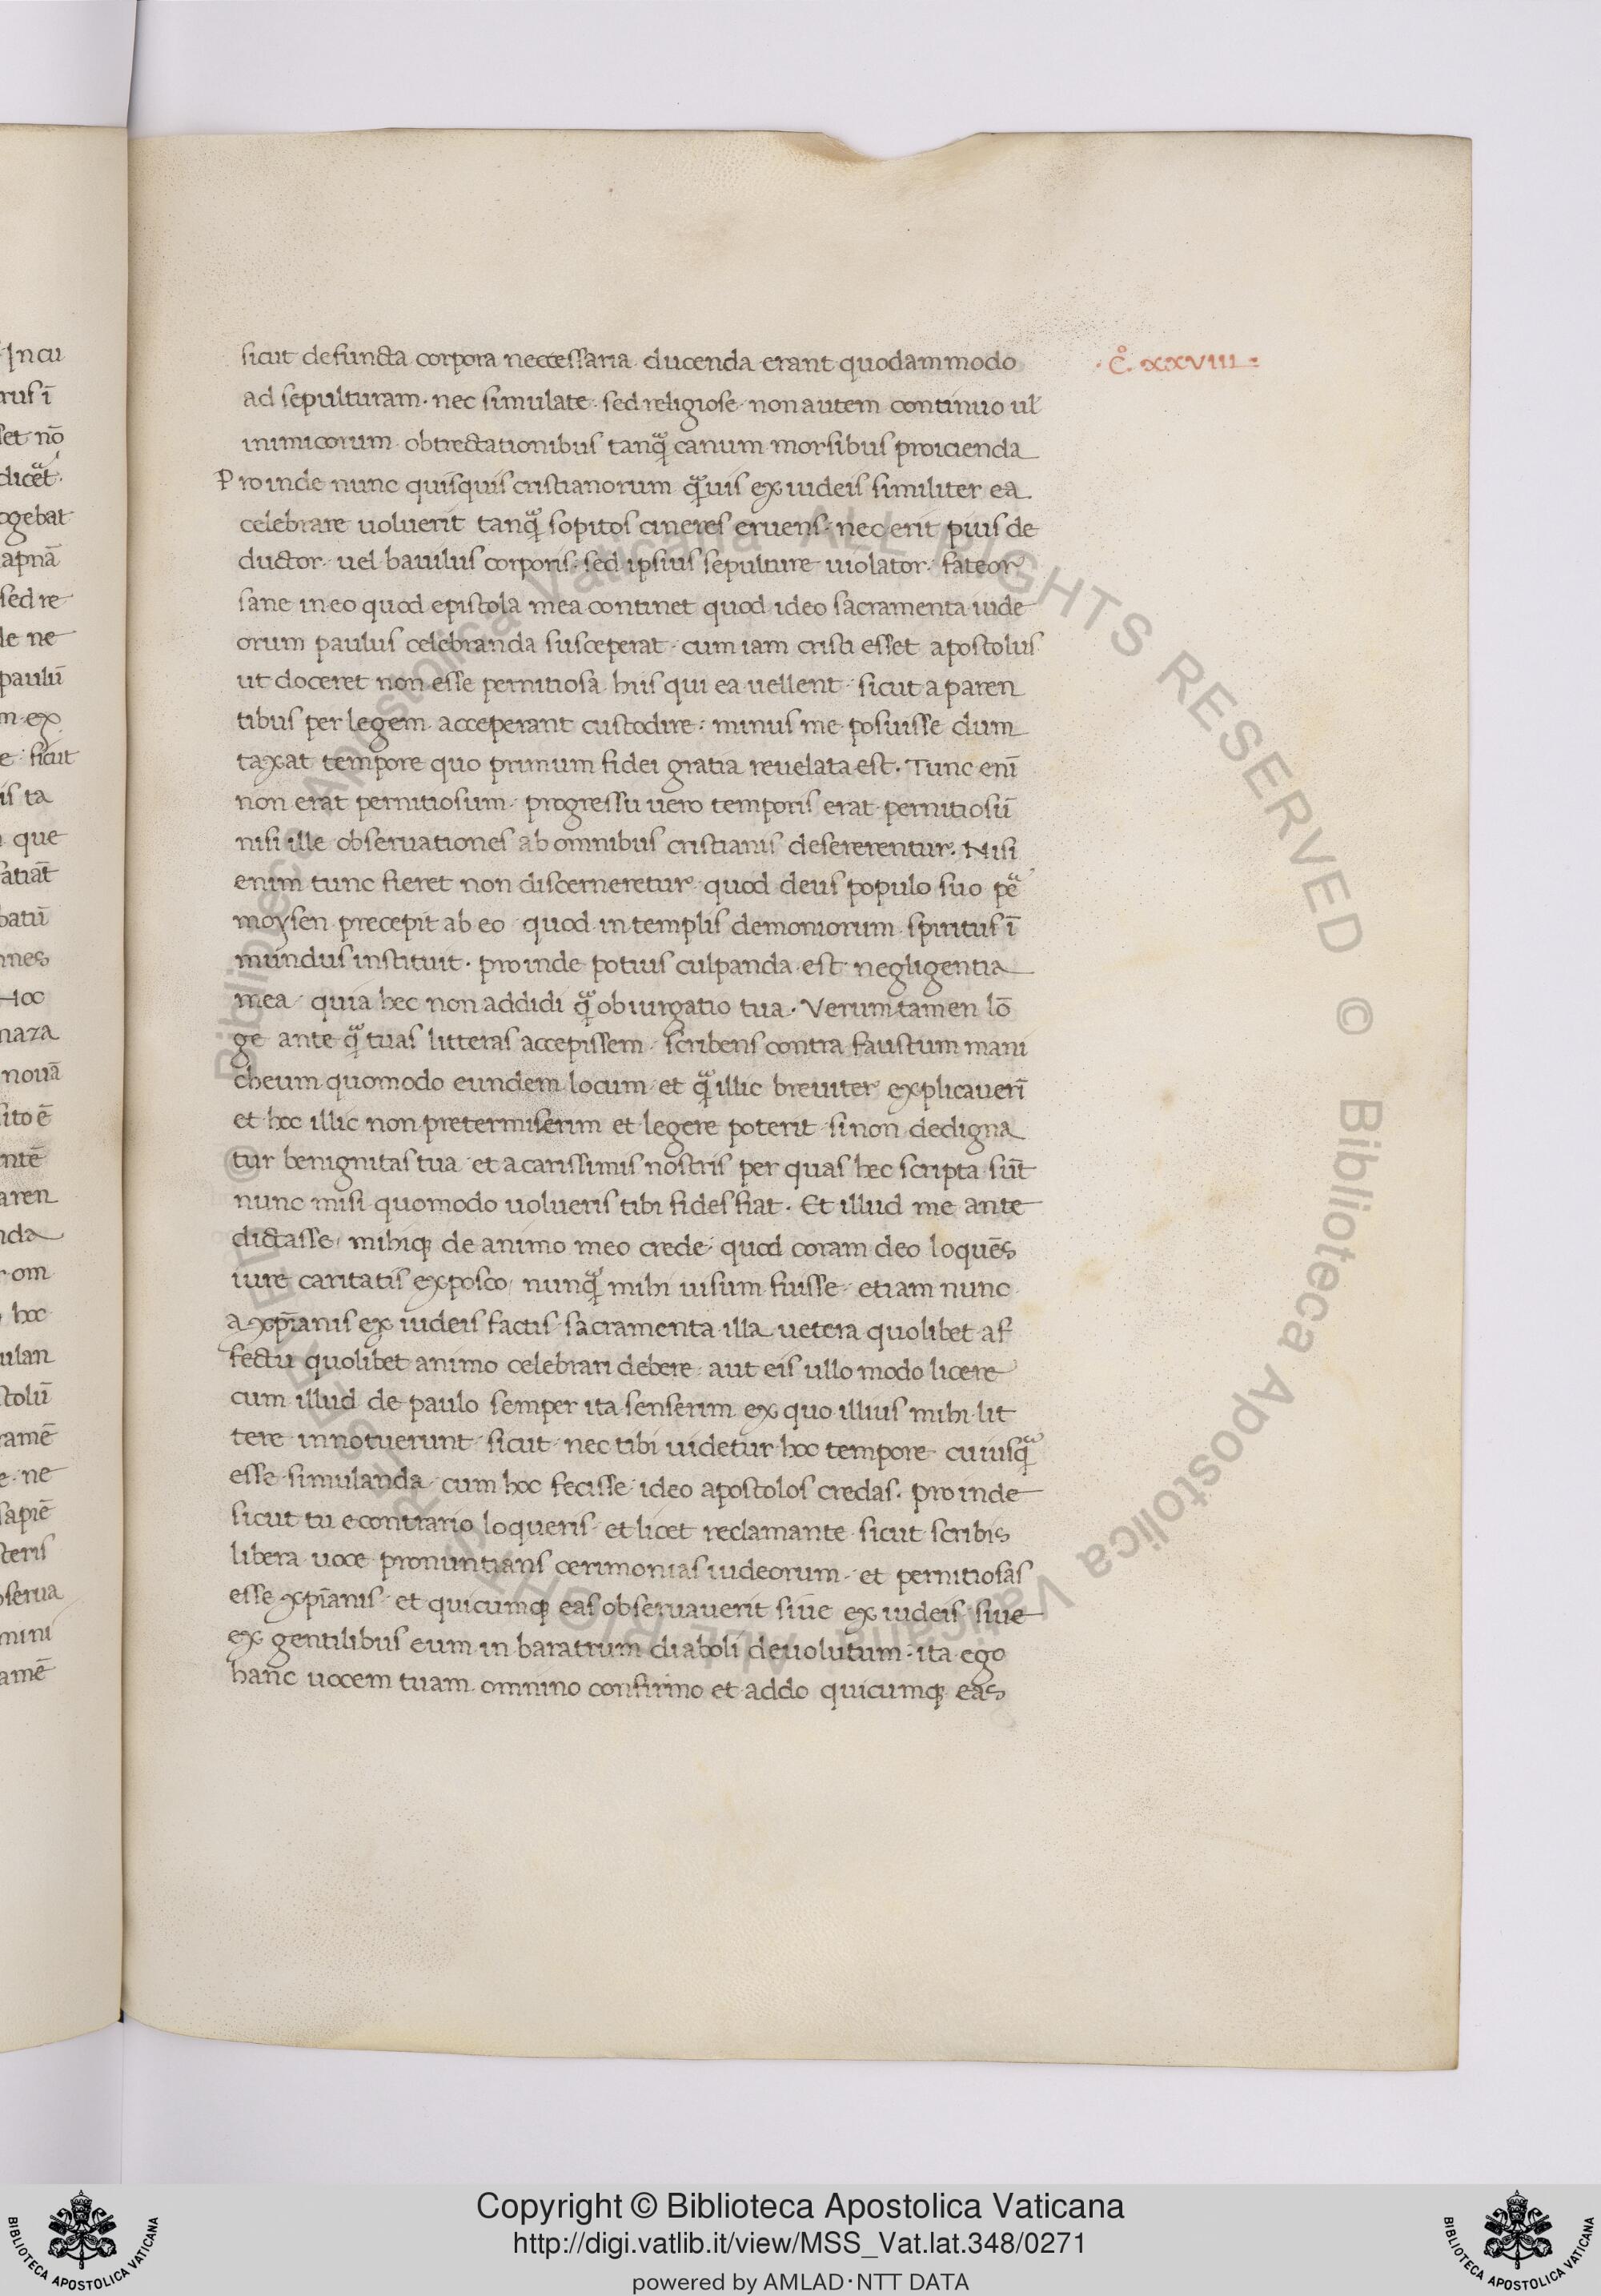 sicut defuncta corpora neccessaria ducenda erant quodammodo
·c̊. xxviii
ad sepulturam· nec simulate· sed religiose· non autem continuo ul̄
inimicorum obtrectationibus tanq̃ canum morsibus proicienda
Proinde nunc quisquis cristianorum q̃uis ex iudeis similiter ea
celebrare uoluerit tanq̃ sopitos cineres eruens· nec erit pius de
ductor· uel baiulus corporis· sed ipsius sepulture uiolator· fateor
sane in eo quod epistola mea continet quod ideo sacramenta iude
orum paulus celebranda susceperat· cum iam cristi esset apostolus
ut doceret non esse pernitiosa hiis qui ea uellent· sicut a paren
tibus per legem acceperant custodire· minus me posuisse dum
taxat tempore quo primum fidei gratia reuelata est. Tunc eni̅
non erat pernitiosum· progressu uero temporis erat pernitiosu̅
nisi ille obseruationes ab omnibus cristianis desererentur. Nisi
enim tunc fieret non discerneretur quod deus populo suo pe
moysen precepit ab eo quod in templis demoniorum spiritus i̅
mundus instituit· proinde potius culpanda est negligentia
mea quia hec non addidi q̃ obiurgatio tua· Verumtamen lo̅
ge ante q̃ tuas litteras accepissem· scribens contra faustum mani
cheum quomodo eundem locum et q̃ illic breuiter explicaueri̅
et hoc illic non pretermiserim et legere poterit si non dedigna
tur benignitas tua et a carissimis nostris per quas hec scripta su̅t
nunc misi quomodo uolueris tibi fides fiat. Et illud me ante
dictasse· mihiq; de animo meo crede· quod coram deo loque̅s
iure caritatis exposco· nunq̃ mihi uisum fuisse· etiam nunc
a xp̅ianis ex iudeis factis sacramenta illa uetera quolibet af
fectu quolibet animo celebrari debere· aut eis ullo modo licere
cum illud de paulo semper ita senserim ex quo illius mihi lit
tere innotuerunt· sicut nec tibi uidetur hoc tempore cuiusq̃
esse simulanda· cum hoc fecisse ideo apostolos credas. proinde
sicut tu econtrario loqueris· et licet reclamante sicut scribis
libera uoce pronuntians cerimonias iudeorum· et pernitiosas
esse xp̅ianis· et quicumq; eas obseruauerit siue ex iudeis siue
ex gentilibus eum in baratrum diaboli deuolutum· ita ego
hanc uocem tuam omnino confirmo et addo quicumq; eas
Copyright © Biblioteca Apostolica Vaticana
http://digi.vatlib.it/view/MSS_Vat.lat.348/0271
powered by AMLAD·NTT DATA
BIBLIOTECA APOSTOLICA VATICANA
BIBLIOTECA APOSTOLICA VATICANA